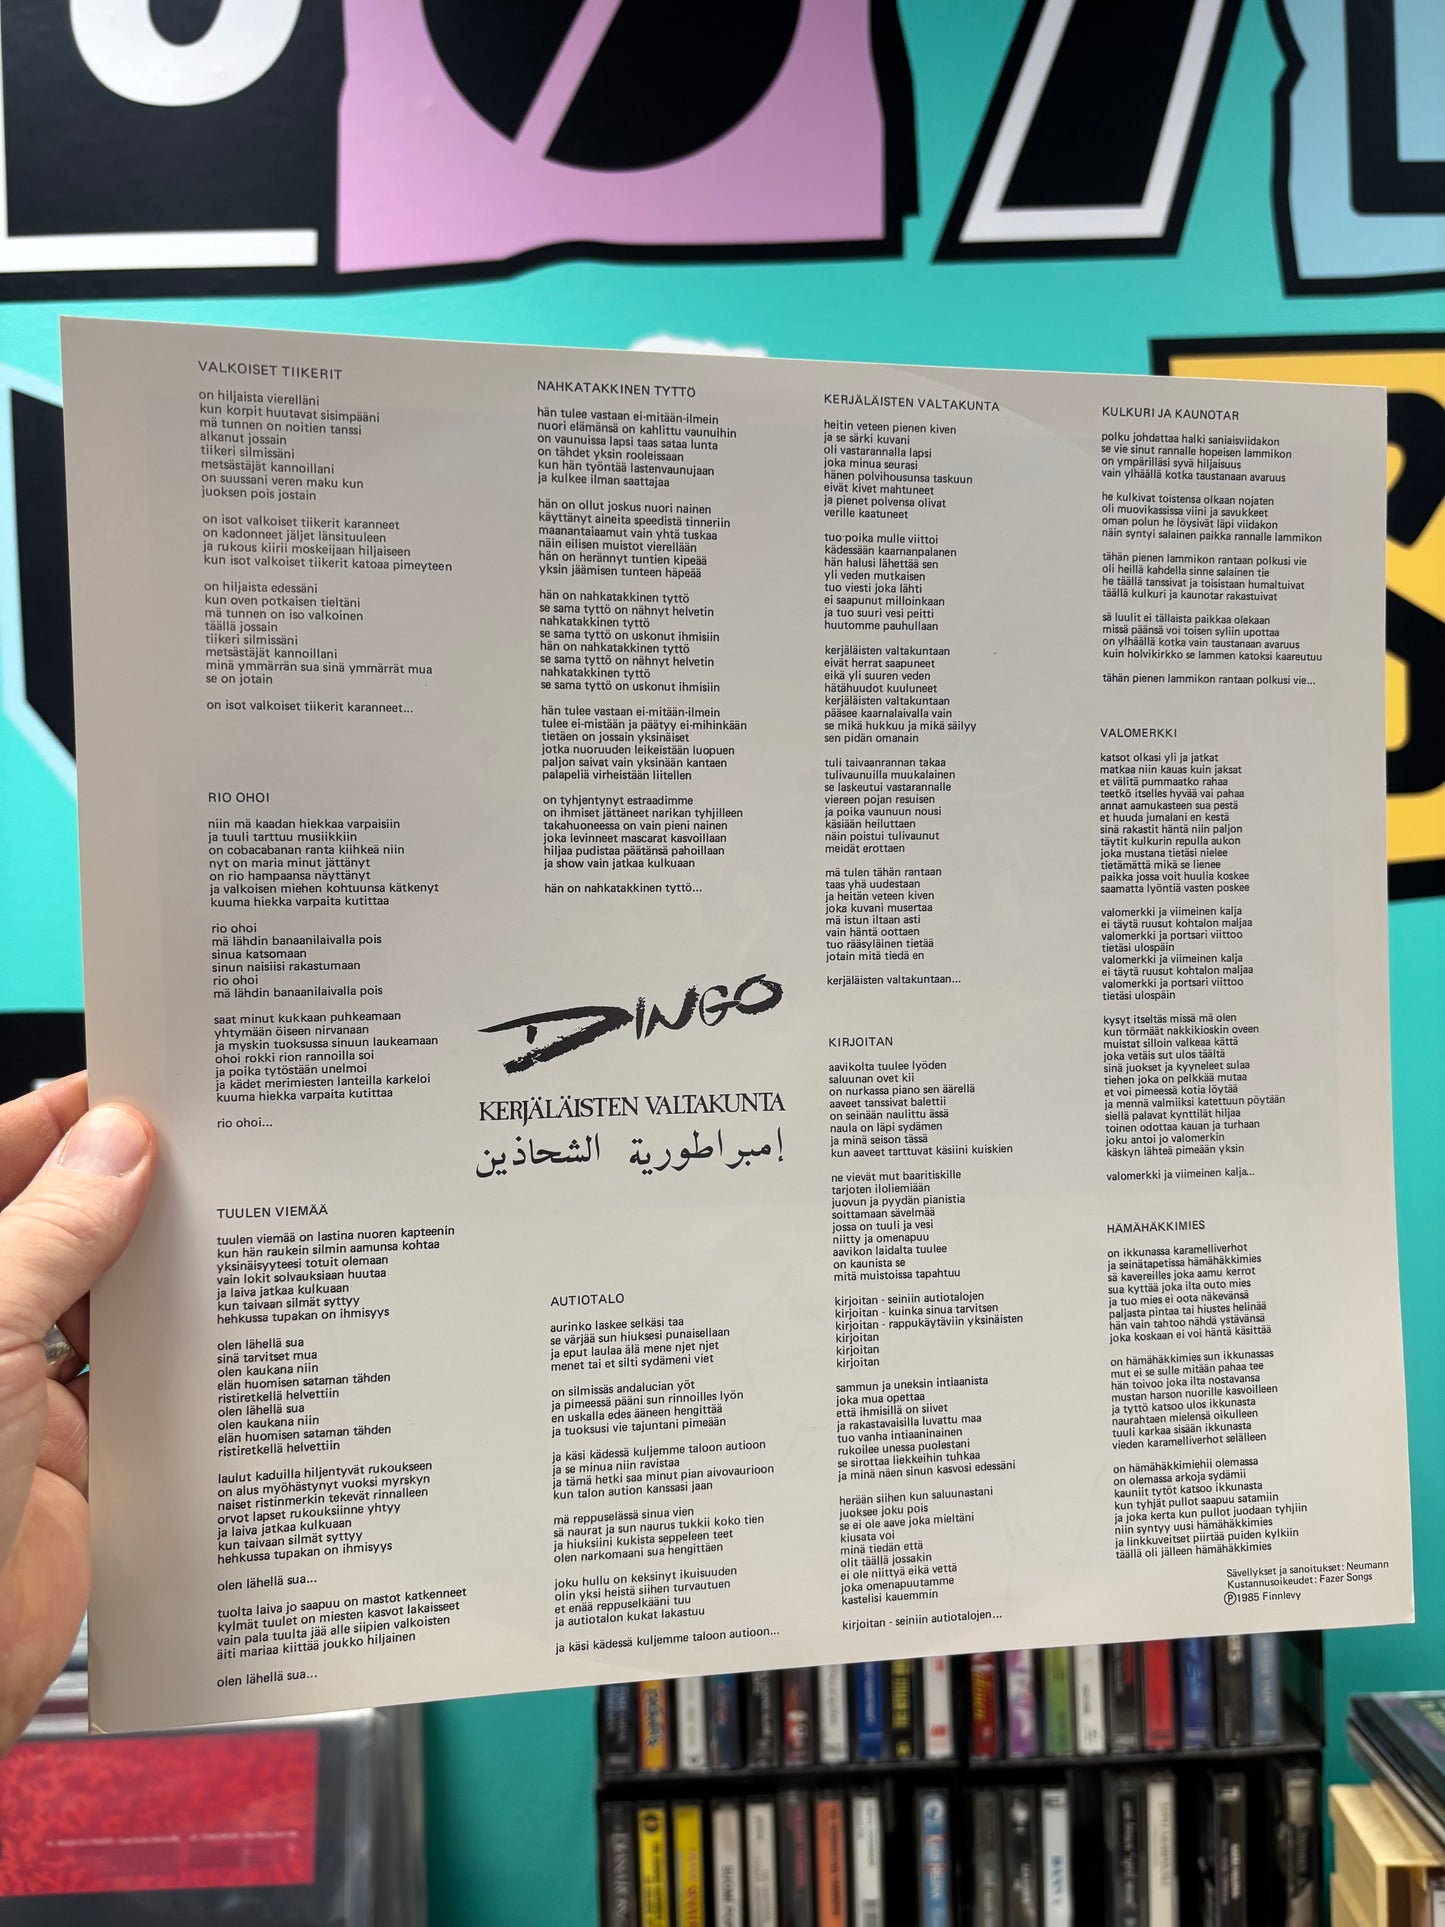 VALKOISET TIIKERIT
on hiljaista vierelläni
kun korpit huutavat sisimpääni
mä tunnen on noitien tanssi
alkanut jossain
tiikeri silmissäni
metsästäjät kannoillani
on suussani veren maku kun
juoksen pois jostain
on isot valkoiset tiikerit karanneet
on kadonneet jäljet länsituuleen
ja rukous kiirii moskeijaan hiljaiseen
kun isot valkoiset tiikerit katoaa pimeyteen
on hiljaista edessäni
kun oven potkaisen tieltäni
mä tunnen on iso valkoinen
täällä jossain
tiikeri silmissäni
metsästäjät kannoillani
minä ymmärrän sua sinä ymmärrät mua
se on jotain
on isot valkoiset tiikerit karanneet...
RIO OHOI
niin mä kaadan hiekkaa varpaisiin
ja tuuli tarttuu musiikkiin
on cobacabanan ranta kiihkeä niin
nyt on maria minut jättänyt
on rio hampaansa näyttänyt
ja valkoisen miehen kohtuunsa kätkenyt
kuuma hiekka varpaita kutittaa
rio ohoi
mä lähdin banaanilaivalla pois
sinua katsomaan
sinun naisiisi rakastumaan
rio ohoi
mä lähdin banaanilaivalla pois
saat minut kukkaan puhkeamaan
yhtymään öiseen nirvanaan
ja myskin tuoksussa sinuun laukeamaan
ohoi rokki rion rannoilla soi
ja poika tytöstään unelmoi
ja kädet merimiesten lanteilla karkeloi
kuuma hiekka varpaita kutittaa
rio ohoi...
TUULEN VIEMÄÄ
tuulen viemää on lastina nuoren kapteenin
kun hän raukein silmin aamunsa kohtaa
yksinäisyyteesi totuit olemaan
vain lokit solvauksiaan huutaa
ja laiva jatkaa kulkuaan
kun taivaan silmät syttyy
hehkussa tupakan on ihmisyys
olen lähellä sua
sinä tarvitset mua
olen kaukana niin
elän huomisen sataman tähden
ristiretkellä helvettiin
olen lähellä sua
olen kaukana niin
elän huomisen sataman tähden
ristiretkellä helvettiin
laulut kaduilla hiljentyvät rukoukseen
on alus myöhästynyt vuoksi myrskyn
naiset ristinmerkin tekevät rinnalleen
orvot lapset rukouksiinne yhtyy
ja laiva jatkaa kulkuaan
kun taivaan silmät syttyy
hehkussa tupakan on ihmisyys
olen lähellä sua...
tuolta laiva jo saapuu on mastot katkenneet
kylmät tuulet on miesten kasvot lakaisseet
vain pala tuulta jää alle siipien valkoisten
äiti mariaa kiittää joukko hiljainen
olen lähellä sua...
NAHKATAKKINEN TYTTÖ
hän tulee vastaan ei-mitään-ilmein
nuori elämänsä on kahlittu vaunuihin
on vaunuissa lapsi taas sataa lunta
on tähdet yksin rooleissaan
kun hän työntää lastenvaunujaan
ja kulkee ilman saattajaa
hän on ollut joskus nuori nainen
käyttänyt aineita speedistä tinneriin
maanantaiaamut vain yhtä tuskaa
näin eilisen muistot vierellään
hän on herännyt tuntien kipeää
yksin jäämisen tunteen häpeää
hän on nahkatakkinen tyttö
se sama tyttö on nähnyt helvetin
nahkatakkinen tyttö
se sama tyttö on uskonut ihmisiin
hän on nahkatakkinen tyttö
se sama tyttö on nähnyt helvetin
nahkatakkinen tyttö
se sama tyttö on uskonut ihmisiin
hän tulee vastaan ei-mitään-ilmein
tulee ei-mistään ja päätyy ei-mihinkään
tietäen on jossain yksinäiset
jotka nuoruuden leikeistään luopuen
paljon saivat vain yksinään kantaen
palapeliä virheistään liitellen
on tyhjentynyt estraadimme
on ihmiset jättäneet narikan tyhjilleen
takahuoneessa on vain pieni nainen
joka levinneet mascarat kasvoillaan
hiljaa pudistaa päätänsä pahoillaan
ja show vain jatkaa kulkuaan
hän on nahkatakkinen tyttö...
DINGO
KERJÄLÄISTEN VALTAKUNTA
إمبراطورية الشحاذين
AUTIOTALO
aurinko laskee selkäsi taa
se värjää sun hiuksesi punaisellaan
ja eput laulaa älä mene njet njet
menet tai et silti sydämeni viet
on silmissäs andalucian yöt
ja pimeessä pääni sun rinnoilles lyön
en uskalla edes ääneen hengittää
ja tuoksusi vie tajuntani pimeään
ja käsi kädessä kuljemme taloon autioon
ja se minua niin ravistaa
ja tämä hetki saa minut pian aivovaurioon
kun talon aution kanssasi jaan
mä reppuselässä sinua vien
sä naurat ja sun naurus tukkii koko tien
ja hiuksiini kukista seppeleen teet
olen narkomaani sua hengittäen
joku hullu on keksinyt ikuisuuden
olin yksi heistä siihen turvautuen
et enää reppuselkääni tuu
ja autiotalon kukat lakastuu
ja käsi kädessä kuljemme taloon autioon...
KERJÄLÄISTEN VALTAKUNTA
heitin veteen pienen kiven
ja se särki kuvani
oli vastarannalla lapsi
joka minua seurasi
hänen polvihousunsa taskuun
eivät kivet mahtuneet
ja pienet polvensa olivat
verille kaatuneet
tuo poika mulle viittoi
kädessään kaarnanpalanen
hän halusi lähettää sen
yli veden mutkaisen
tuo viesti joka lähti
ei saapunut milloinkaan
ja tuo suuri vesi peitti
huutomme pauhullaan
kerjäläisten valtakuntaan
eivät herrat saapuneet
eikä yli suuren veden
hätähuudot kuuluneet
kerjäläisten valtakuntaan
pääsee kaarnalaivalla vain
se mikä hukkuu ja mikä säilyy
sen pidän omanain
tuli taivaanrannan takaa
tulivaunuilla muukalainen
se laskeutui vastarannalle
viereen pojan resuisen
ja poika vaunuun nousi
käsiään heiluttaen
näin poistui tulivaunut
meidät erottaen
mä tulen tähän rantaan
taas yhä uudestaan
ja heitän veteen kiven
joka kuvani musertaa
mä istun iltaan asti
vain häntä oottaen
tuo rääsyläinen tietää
jotain mitä tiedä en
kerjäläisten valtakuntaan...
KIRJOITAN
aavikolta tuulee lyöden
saluunan ovet kii
on nurkassa piano sen äärellä
aaveet tanssivat balettii
on seinään naulittu ässä
naula on läpi sydämen
ja minä seison tässä
kun aaveet tarttuvat käsiini kuiskien
ne vievät mut baaritiskille
tarjoten iloliemiään
juovun ja pyydän pianistia
soittamaan sävelmää
jossa on tuuli ja vesi
niitty ja omenapuu
aavikon laidalta tuulee
on kaunista se
mitä muistoissa tapahtuu
kirjoitan - seiniin autiotalojen
kirjoitan - kuinka sinua tarvitsen
kirjoitan - rappukäytäviin yksinäisten
kirjoitan
kirjoitan
kirjoitan
sammun ja uneksin intiaanista
joka mua opettaa
että ihmisillä on siivet
ja rakastavaisilla luvattu maa
tuo vanha intiaaninainen
rukoilee unessa puolestani
se sirottaa liekkeihin tuhkaa
ja minä näen sinun kasvosi edessäni
herään siihen kun saluunastani
juoksee joku pois
se ei ole aave joka mieltäni
kiusata voi
minä tiedän että
olit täällä jossakin
ei ole niittyä eikä vettä
joka omenapuutamme
kastelisi kauemmin
kirjoitan - seiniin autiotalojen...
KULKURI JA KAUNOTAR
polku johdattaa halki saniaisviidakon
se vie sinut rannalle hopeisen lammikon
on ympärilläsi syvä hiljaisuus
vain ylhäällä kotka taustanaan avaruus
he kulkivat toistensa olkaan nojaten
oli muovikassissa viini ja savukkeet
oman polun he löysivät läpi viidakon
näin syntyi salainen paikka rannalle lammikon
tähän pienen lammikon rantaan polkusi vie
oli heillä kahdella sinne salainen tie
he täällä tanssivat ja toisistaan humaltuivat
täällä kulkuri ja kaunotar rakastuivat
sä luulit ei tällaista paikkaa olekaan
missä päänsä voi toisen syliin upottaa
on ylhäällä kotka vain taustanaan avaruus
kuin holvikirkko se lammen katoksi kaareutuu
tähän pienen lammikon rantaan polkusi vie...
VALOMERKKI
katsot olkasi yli ja jatkat
matkaa niin kauas kuin jaksat
et välitä pummaatko rahaa
teetkö itselles hyvää vai pahaa
annat aamukasteen sua pestä
et huuda jumalani en kestä
sinä rakastit häntä niin paljon
täytit kulkurin repulla aukon
joka mustana tietäsi nielee
tietämättä mikä se lienee
paikka jossa voit huulia koskee
saamatta lyöntiä vasten poskee
valomerkki ja viimeinen kalja
ei täytä ruusut kohtalon maljaa
valomerkki ja portsari viittoo
tietäsi ulospäin
valomerkki ja viimeinen kalja
ei täytä ruusut kohtalon maljaa
valomerkki ja portsari viittoo
tietäsi ulospäin
kysyt itseltäs missä mä olen
kun törmäät nakkikioskin oveen
muistat silloin valkeaa kättä
joka vetäis sut ulos täältä
sinä juokset ja kyyneleet sulaa
tiehen joka on pelkkää mutaa
et voi pimeessä kotia löytää
ja mennä valmiiksi katettuun pöytään
siellä palavat kynttilät hiljaa
toinen odottaa kauan ja turhaan
joku antoi jo valomerkin
käskyn lähteä pimeään yksin
valomerkki ja viimeinen kalja...
HÄMÄHÄKKIMIES
on ikkunassa karamelliverhot
ja seinätapetissa hämähäkkimies
sä kavereilles joka aamu kerrot
sua kyttää joka ilta outo mies
ja tuo mies ei oota näkevänsä
paljasta pintaa tai hiustes helinää
hän vain tahtoo nähdä ystävänsä
joka koskaan ei voi häntä käsittää
on hämähäkkimies sun ikkunassas
mut ei se sulle mitään pahaa tee
hän toivoo joka ilta nostavansa
mustan harson nuorille kasvoilleen
ja tyttö katsoo ulos ikkunasta
naurahtaen mielensä oikulleen
tuuli karkaa sisään ikkunasta
vieden karamelliverhot selälleen
on hämähäkkimiehii olemassa
on olemassa arkoja sydämii
kauniit tytöt katsoo ikkunasta
kun tyhjät pullot saapuu satamiin
ja joka kerta kun pullot juodaan tyhjiin
niin syntyy uusi hämähäkkimies
ja linkkuveitset piirtää puiden kylkiin
täällä oli jälleen hämähäkkimies
Sävellykset ja sanoitukset: Neumann
Kustannusoikeudet: Fazer Songs
Ⓟ1985 Finnlevy